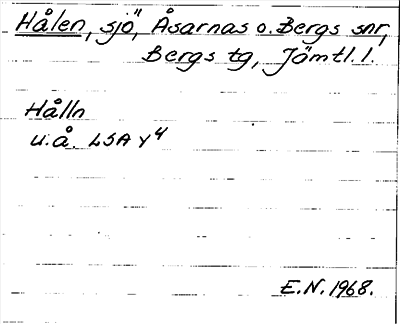 Hålen, sjö, Åsarnas o. Bergs snr,
Bergs tg, Jämtl. l.
Hålln
u.å. LSA Y4
E.N. 1968.